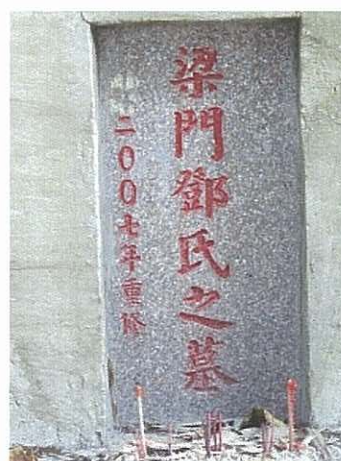 梁門鄧氏之墓
二00七年重修